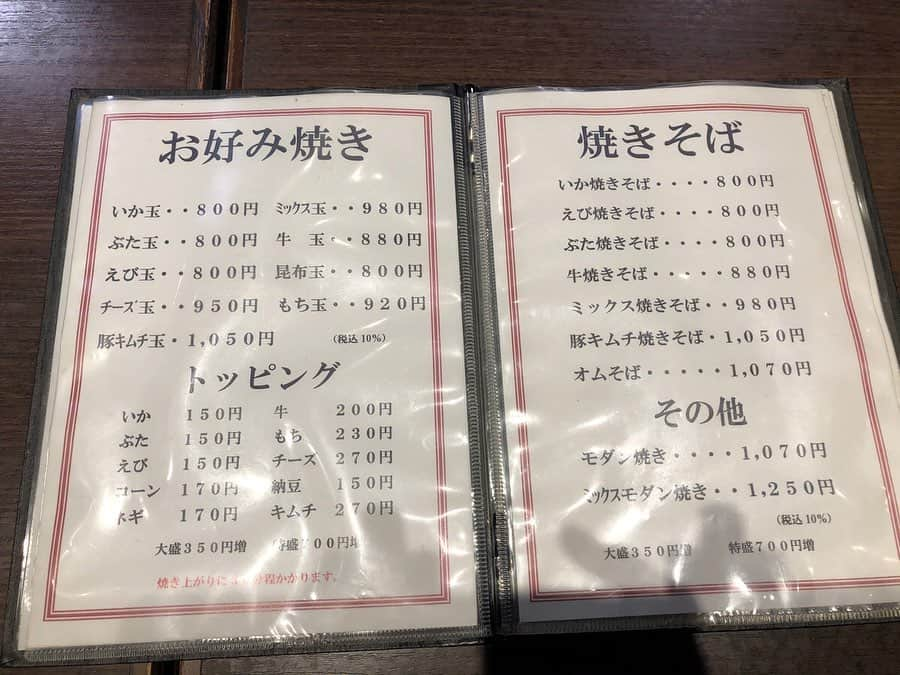 お好み焼き
いか玉・・800円 ミックス玉・・980円
ぶた玉・・800円 牛 玉・・880円
えび玉・・800円 昆布玉・・800円
チーズ玉・・950円 もち玉・・920円
豚キムチ玉・1,050円 (税込10%)
トッピング
いか 150円 牛 200円
ぶた 150円 もち 230円
えび 150円 チーズ 270円
コーン 170円 納豆 150円
ネギ 170円 キムチ 270円
大盛350円増 特盛700円増
焼き上がりに 程かかります。
焼きそば
いか焼きそば・・・・800円
えび焼きそば・・・・800円
ぶた焼きそば・・・・800円
牛焼きそば・・・・・880円
ミックス焼きそば・・980円
豚キムチ焼きそば・1,050円
オムそば・・・・・1,070円
その他
モダン焼き・・・・1,070円
ミックスモダン焼き・・1,250円
(税込10%)
大盛350円増 特盛700円増